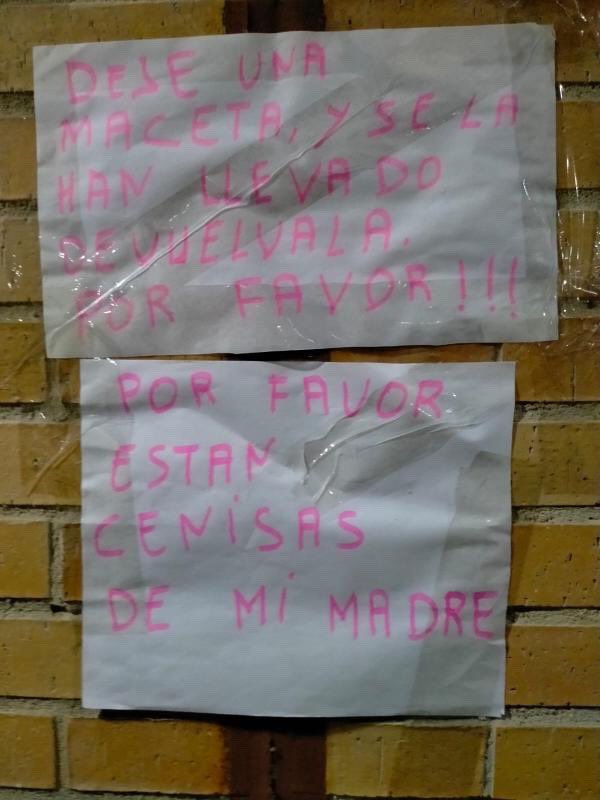 DEJE UNA
MACETA, Y SE LA
HAN LLEVADO
DEVUELVALA.
POR FAVOR!!!
POR FAVOR
ESTAN
CENiSAS
DE Mi MADRE